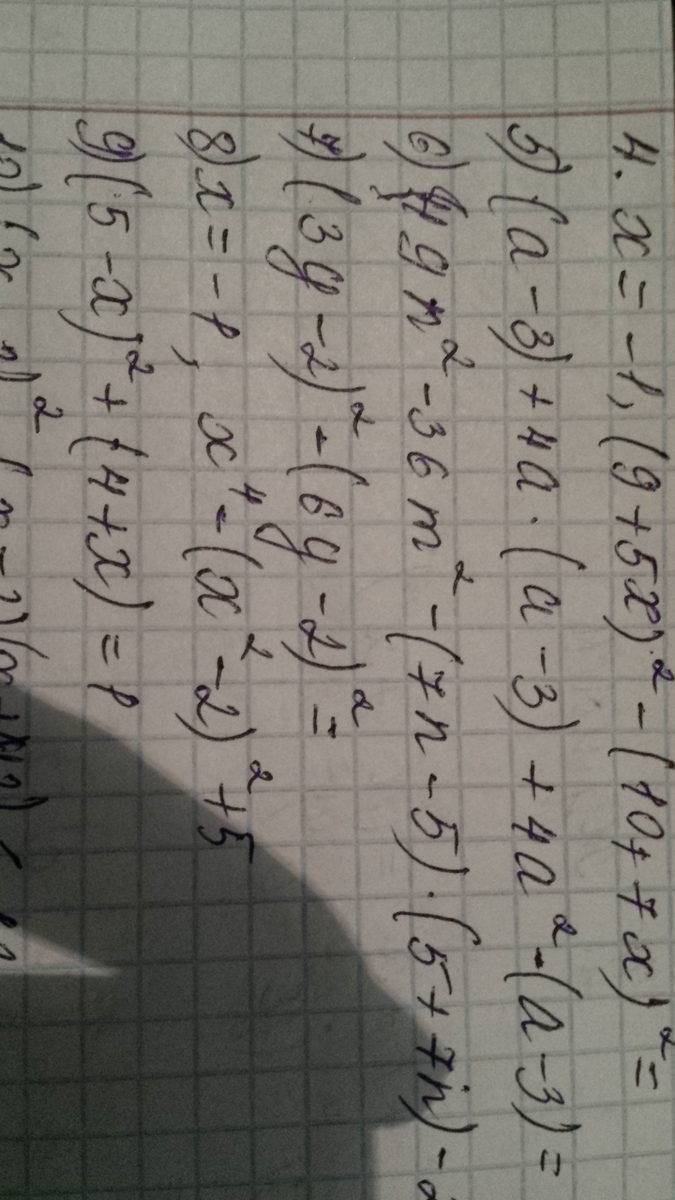 4. x = -1, (9+5x)² - (10+7x)² =
5) (a-3) + 4a · (a-3) + 4a² · (a-3) =
6) 49n² - 36m² - (7n-5) · (5+7n) -
7) (3y-2)² - (6y-2)² =
8) x = -1, x⁴ - (x² - 2)² + 5
9) (5-x)² + (4+x) = 1
10) (x